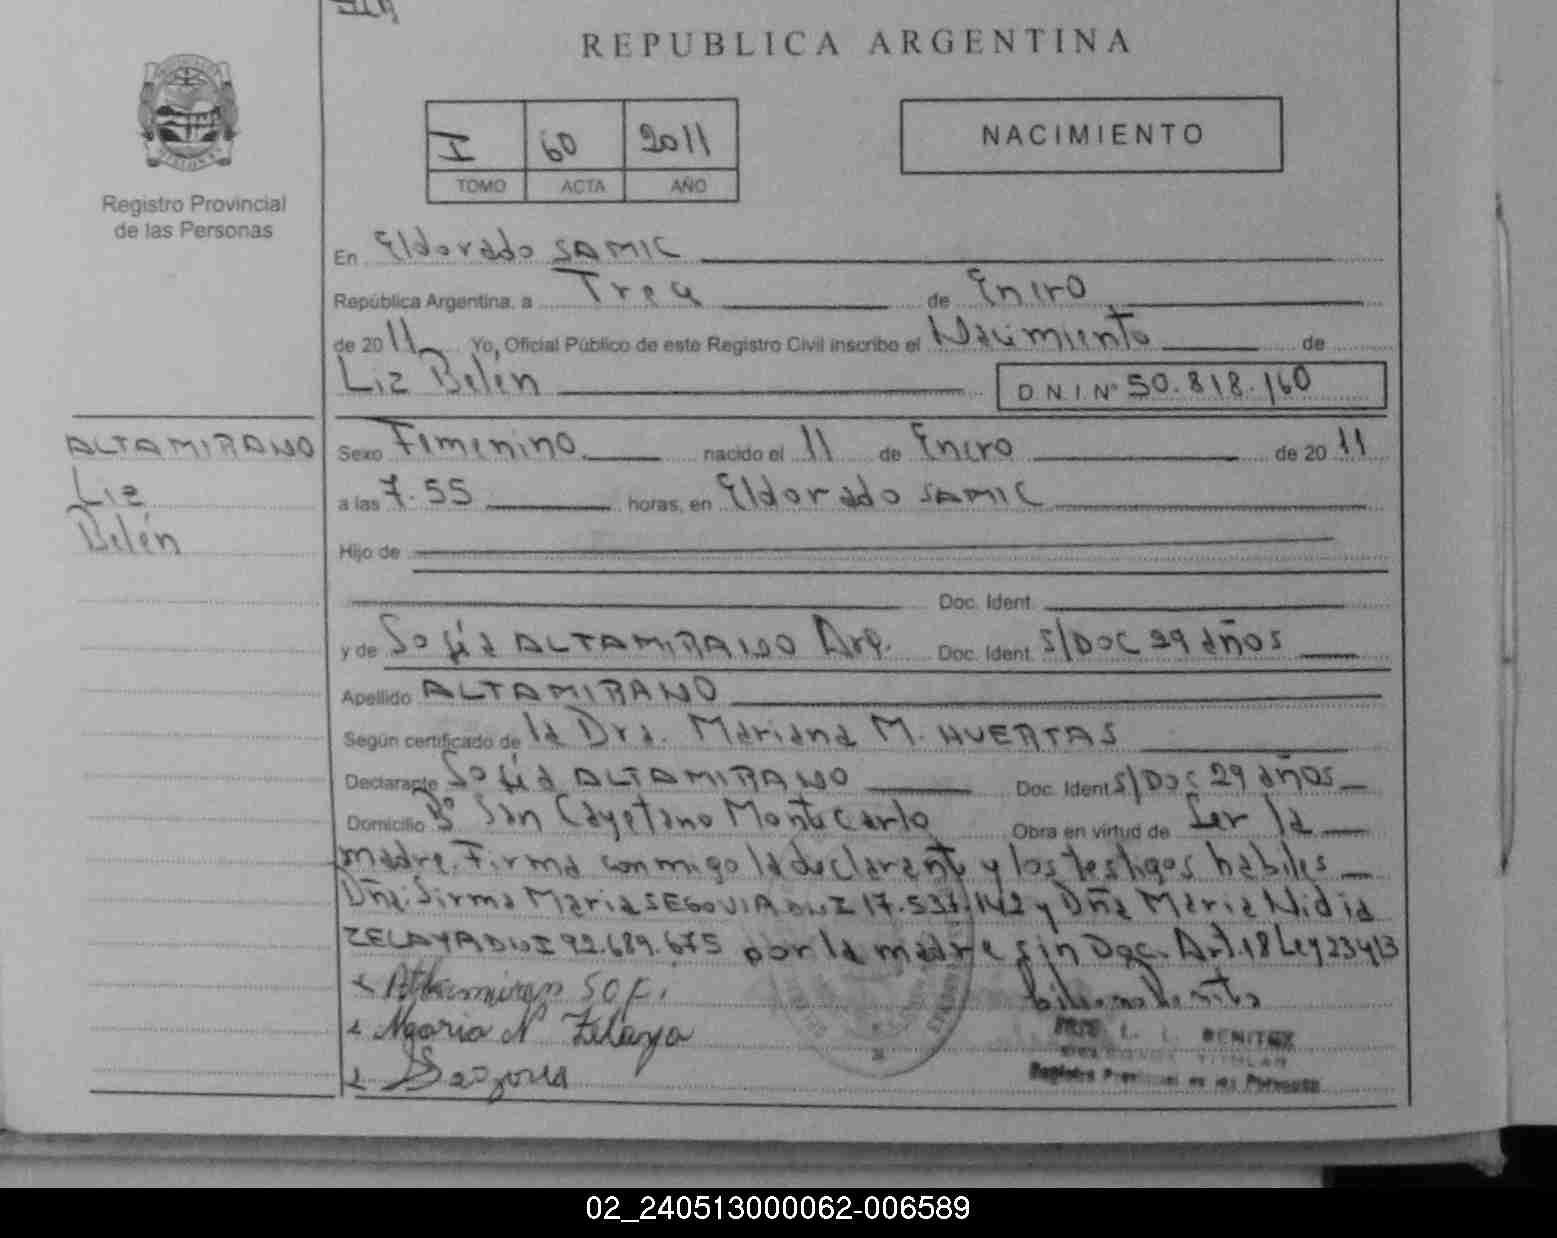 REPUBLICA ARGENTINA
I 60 2011
TOMO ACTA AÑO
NACIMIENTO
Registro Provincial
de las Personas
En Eldorado SAMIC
República Argentina, a Trece de Enero
de 2011 Yo, Oficial Público de este Registro Civil inscribo el Nacimiento de
Liz Belén D.N.I.Nº 50.818.160
ALTAMIRANO
Liz
Belén
Sexo Femenino nacido el 11 de Enero de 2011
a las 7.55 horas, en Eldorado SAMIC
Hijo de
Doc. Ident.
y de Sofía ALTAMIRANO Arg. Doc. Ident. S/DOC 29 años
Apellido ALTAMIRANO
Según certificado de la Dra. Mariana M. HUERTAS
Declarante Sofía ALTAMIRANO Doc. Ident S/Doc 29 años
Domicilio Bº San Cayetano Montecarlo Obra en virtud de Ser la
madre. Firma conmigo la declarante y los testigos hábiles
Dña. Sirma Maria SEGOVIA DNI 17.537.142 y Dña Maria Nidia
ZELAYA DNI 92.689.675 por la madre sin Doc. Art. 18 Ley 23413
Altamiran SOF.
Maria N Zelaya
Segovia
L. L. BENITEZ
TITULAR
Registro Provincial de las Personas
02_240513000062-006589